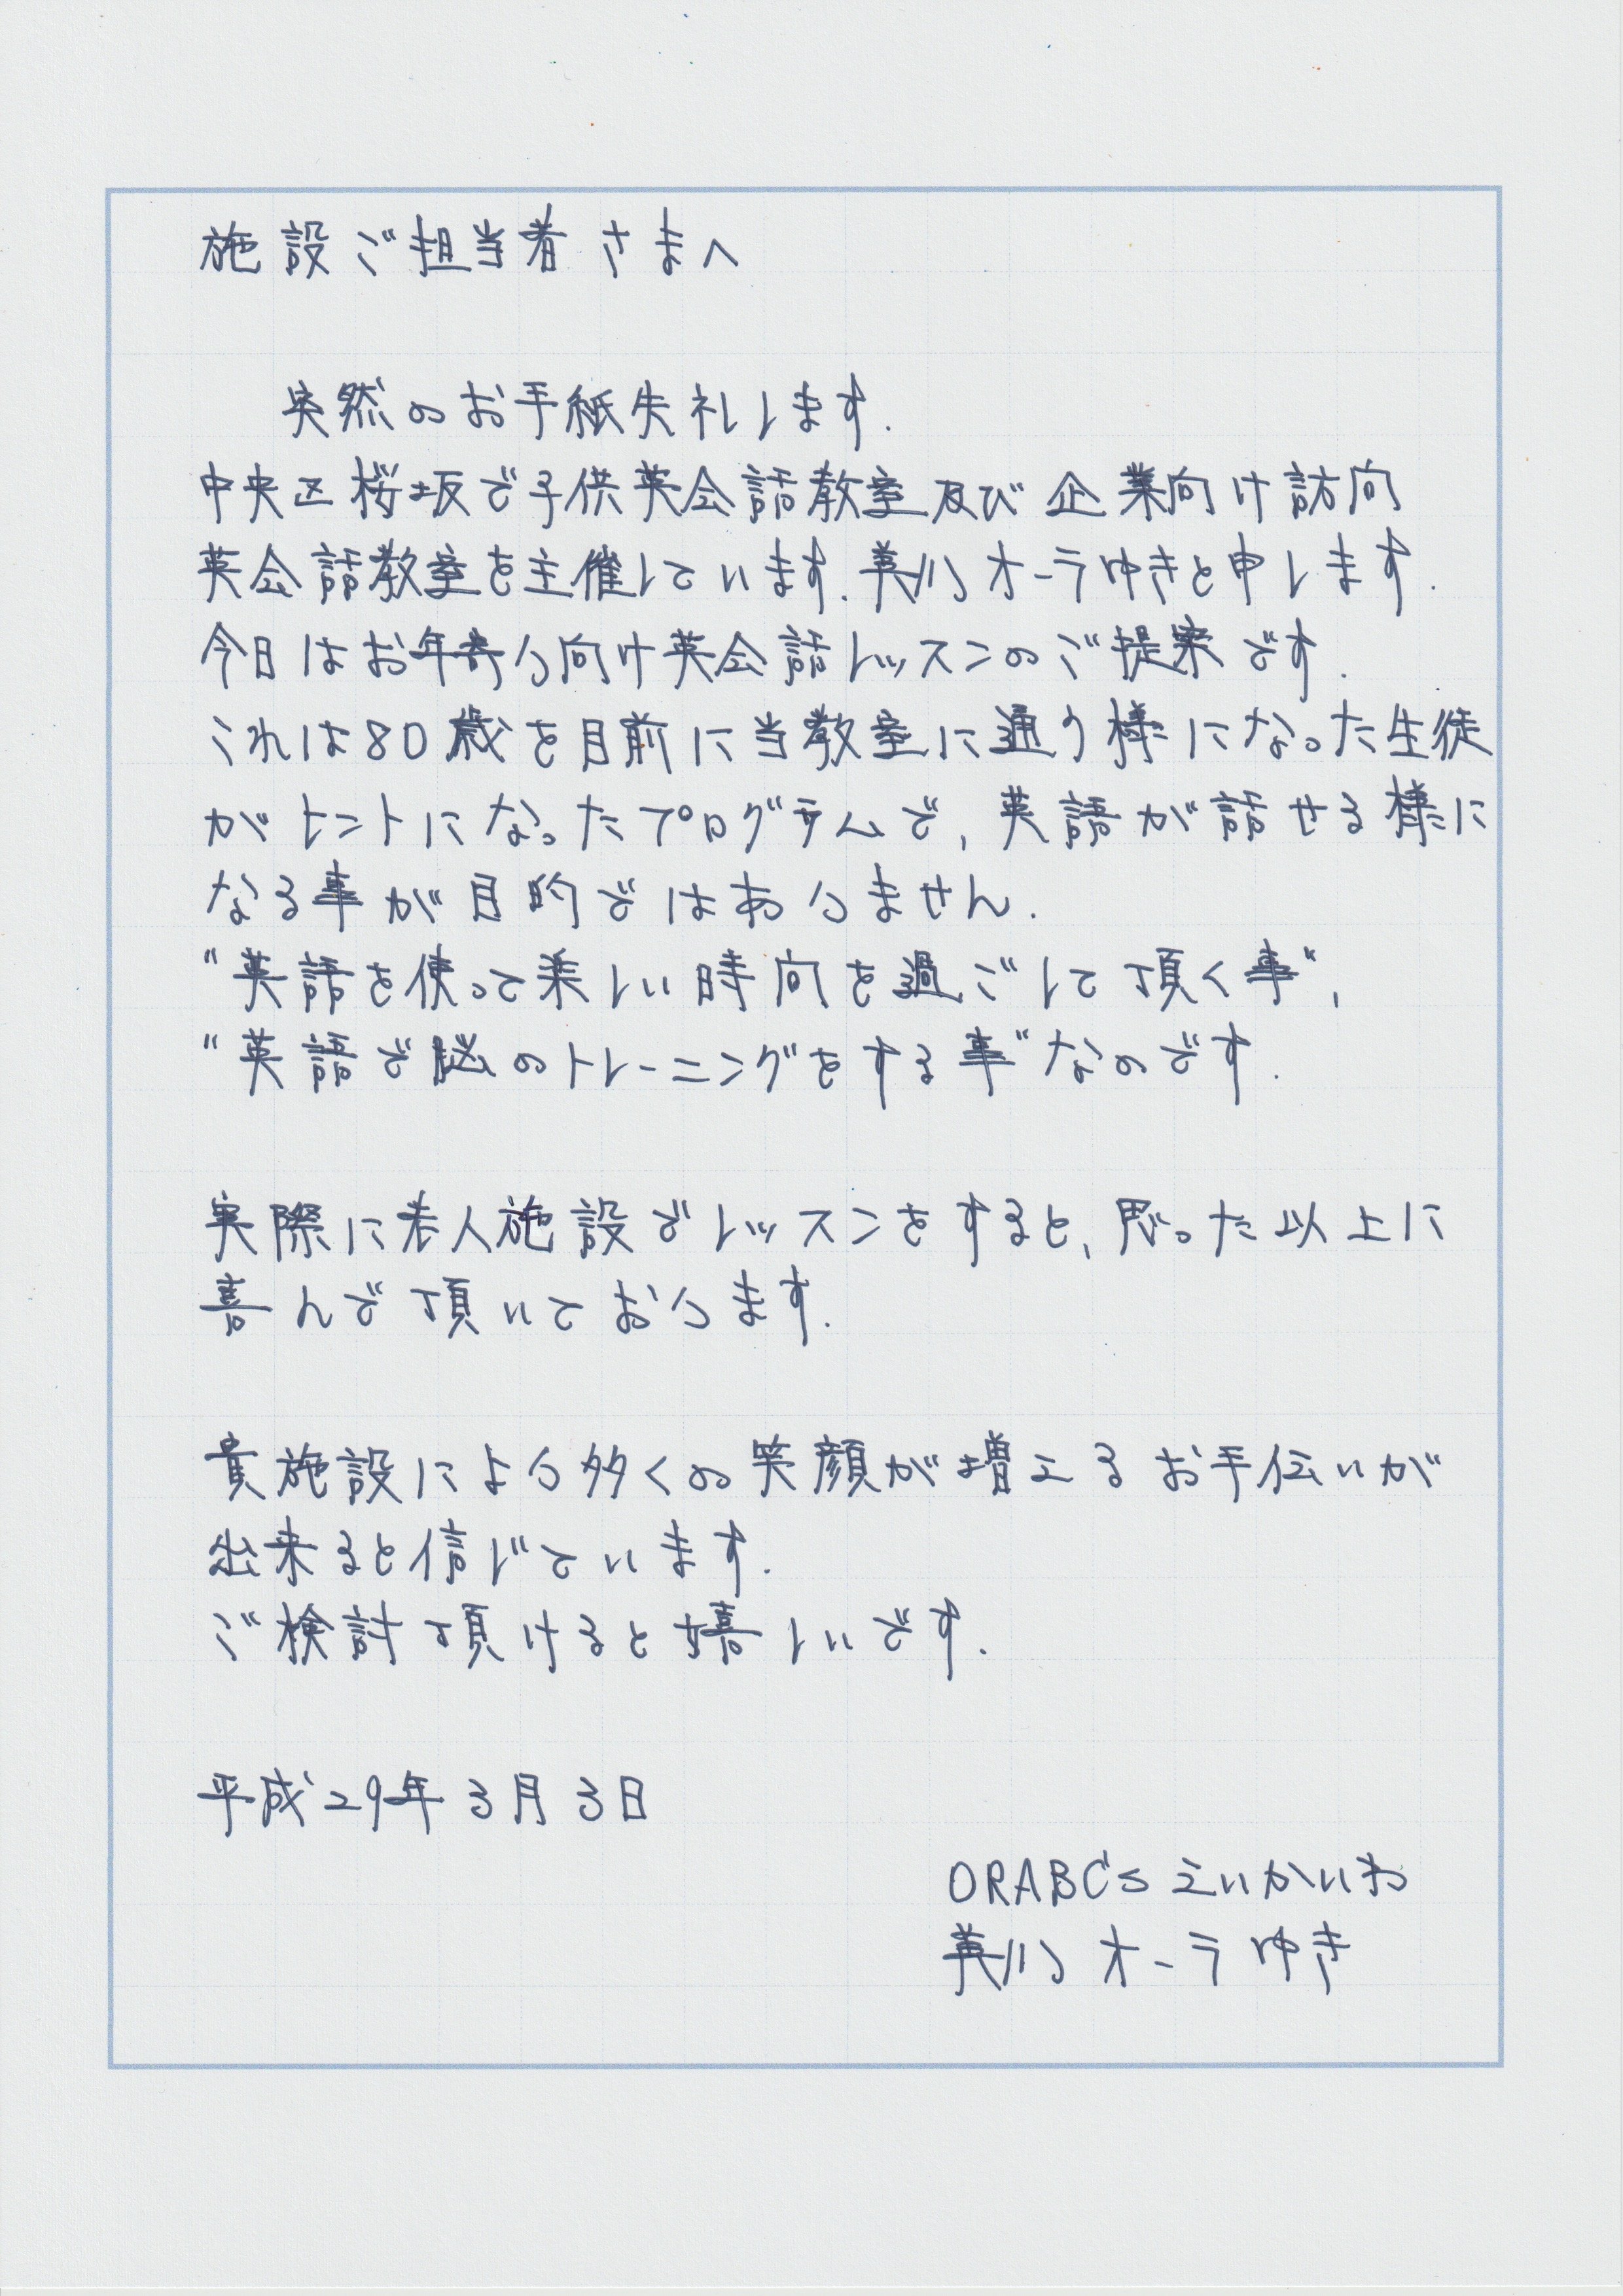 施設ご担当者さまへ
突然のお手紙失礼します.
中央区桜坂で子供英会話教室及び企業向け訪問
英会話教室を主催しています.美川オーラゆきと申します.
今日はお年寄り向け英会話レッスンのご提案です.
これは80歳を目前に当教室に通う様になった生徒
がヒントになったプログラムで,英語が話せる様に
なる事が目的ではありません.
"英語を使って楽しい時間を過ごして頂く事",
"英語で脳のトレーニングをする事"なのです.
実際に老人施設でレッスンをすると,思った以上に
喜んで頂いております.
貴施設により多くの笑顔が増えるお手伝いが
出来ると信じています.
ご検討頂けると嬉しいです.
平成29年3月3日
ORABC'sえいかいわ
美川オーラゆき